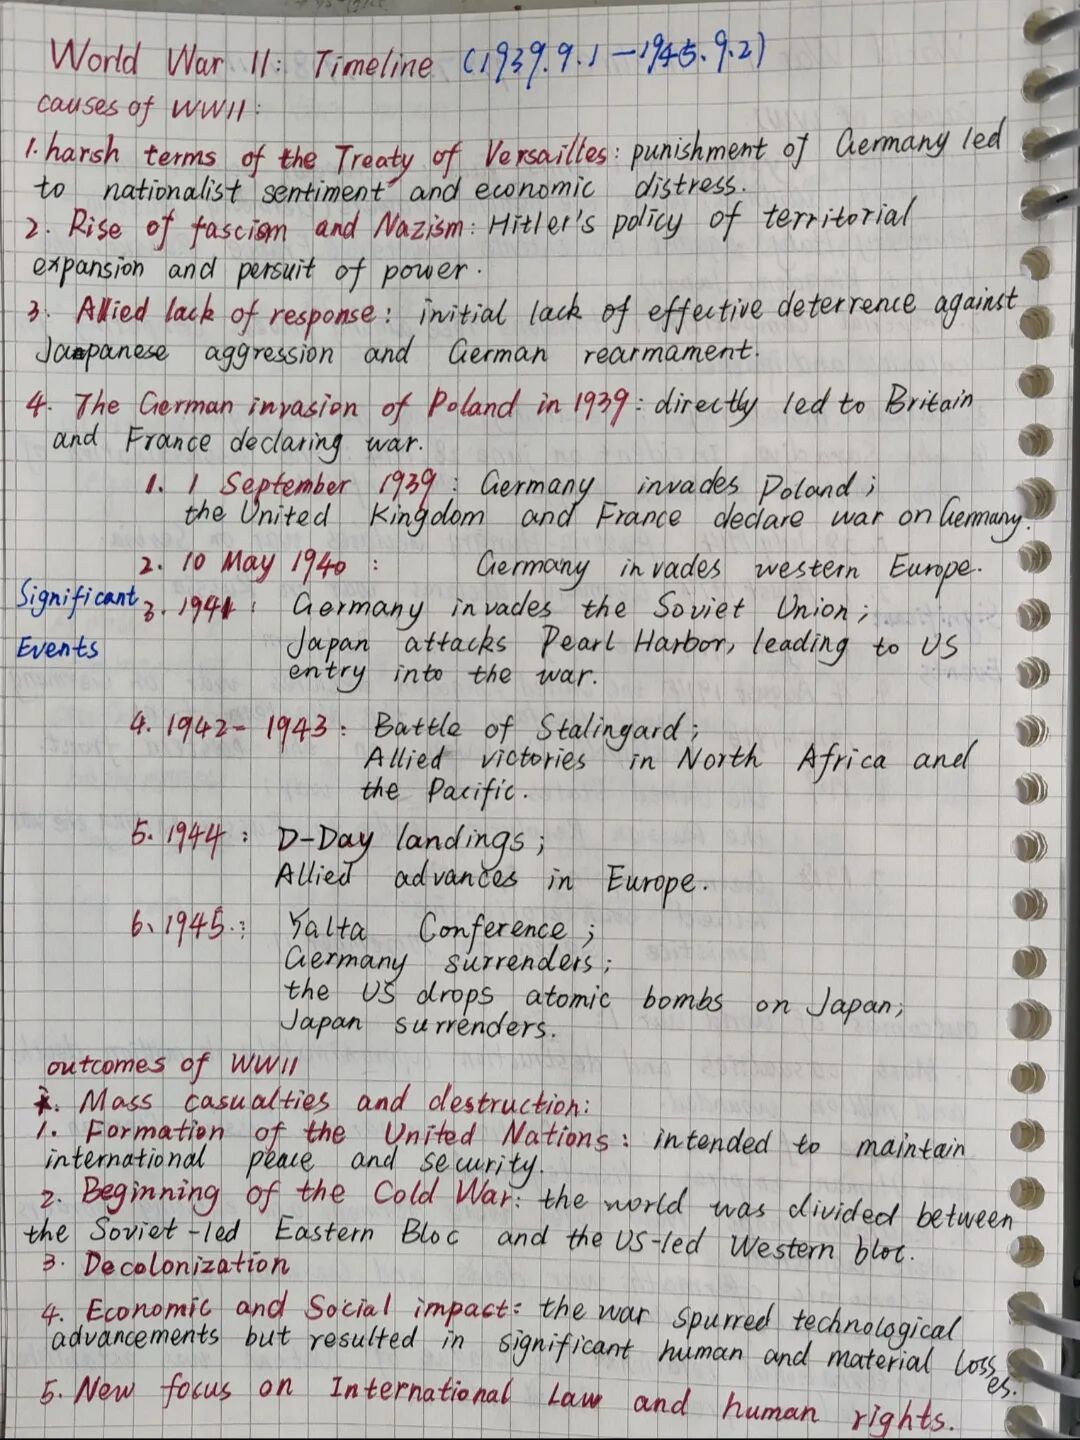 World War II: Timeline (1939.9.1-1945.9.2)
causes of WWII:
1. harsh terms of the Treaty of Versailles: punishment of Germany led
to nationalist sentiment and economic distress.
2. Rise of fascism and Nazism: Hitler's policy of territorial
expansion and persuit of power.
3. Allied lack of response: initial lack of effective deterrence against
Japanese aggression and German rearmament.
4. The German invasion of Poland in 1939: directly led to Britain
and France declaring war.
1. 1 September 1939: Germany invades Poland;
the United Kingdom and France declare war on Germany.
2. 10 May 1940: Germany invades western Europe.
Significant
Events
3. 1941: Germany invades the Soviet Union;
Japan attacks Pearl Harbor, leading to US
entry into the war.
4. 1942-1943: Battle of Stalingard;
Allied victories in North Africa and
the Pacific.
5. 1944: D-Day landings;
Allied advances in Europe.
6、1945.: Yalta Conference;
Germany surrenders;
the US drops atomic bombs on Japan;
Japan surrenders.
outcomes of WWII
. Mass casualties and destruction:
1. Formation of the United Nations: intended to maintain
international peace and security.
2. Beginning of the Cold War: the world was divided between
the Soviet-led Eastern Bloc and the US-led Western bloc.
3. Decolonization
4. Economic and Social impact: the war spurred technological
advancements but resulted in significant human and material losses.
5. New focus on International Law and human rights.